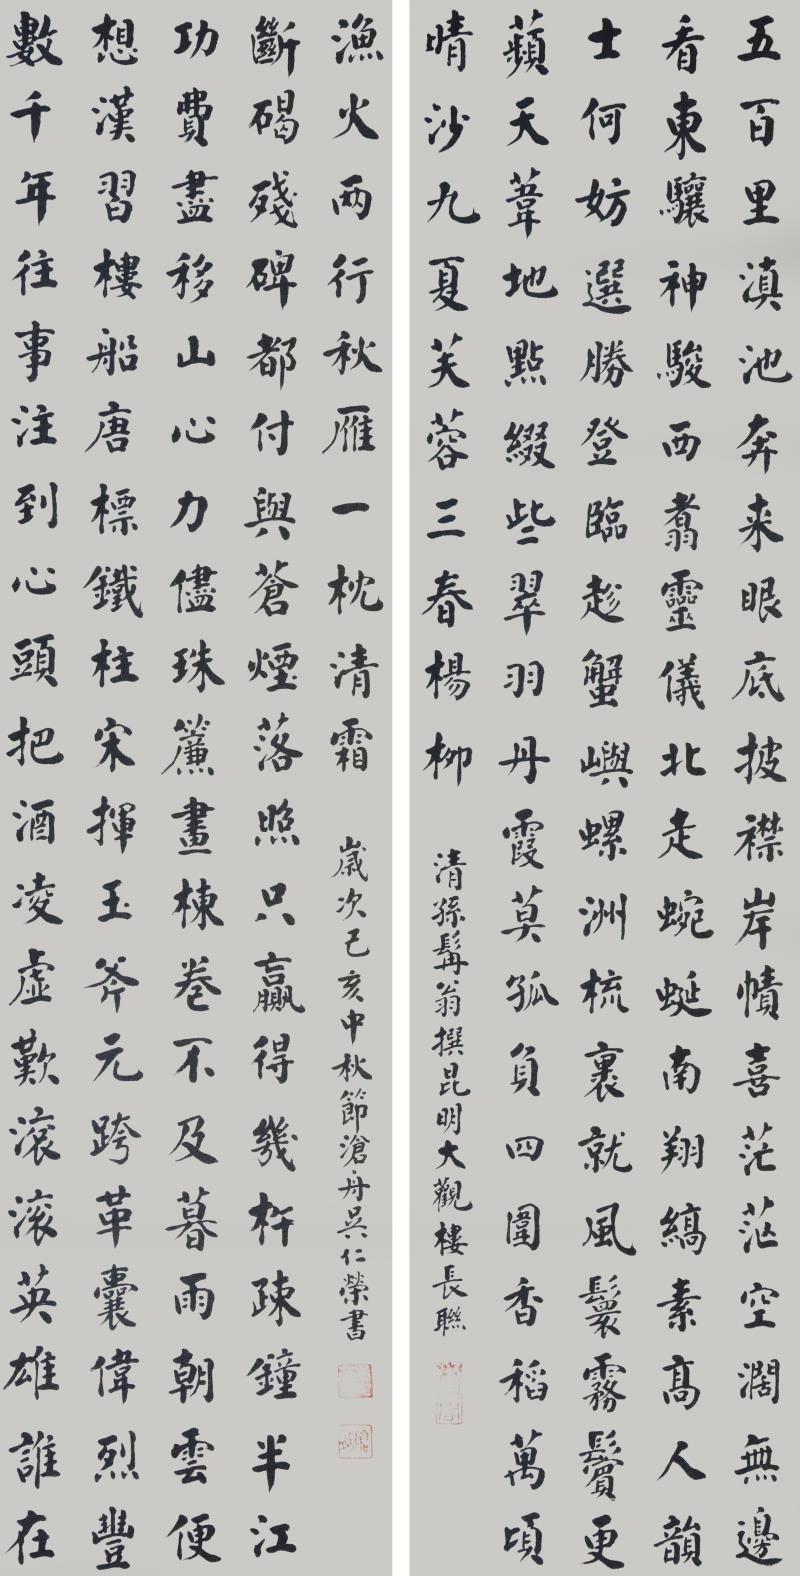 五百里滇池奔来眼底披襟岸幘喜茫茫空闊無邊
看東驤神駿西翥靈儀北走蜿蜒南翔縞素高人韻
士何妨選勝登臨趁蟹嶼螺洲梳裹就風鬟霧鬢更
蘋天葦地點綴些翠羽丹霞莫孤負四圍香稻萬頃
晴沙九夏芙蓉三春楊柳
清孫髯翁撰昆明大觀樓長聯
數千年往事注到心頭把酒凌虛歎滾滾英雄誰在
想漢習樓船唐標鐵柱宋揮玉斧元跨革囊偉烈豐
功費盡移山心力儘珠簾畫棟卷不及暮雨朝雲便
斷碣殘碑都付與蒼煙落照只贏得幾杵疎鐘半江
漁火兩行秋雁一枕清霜
歲次己亥中秋節滄舟吳仁榮書